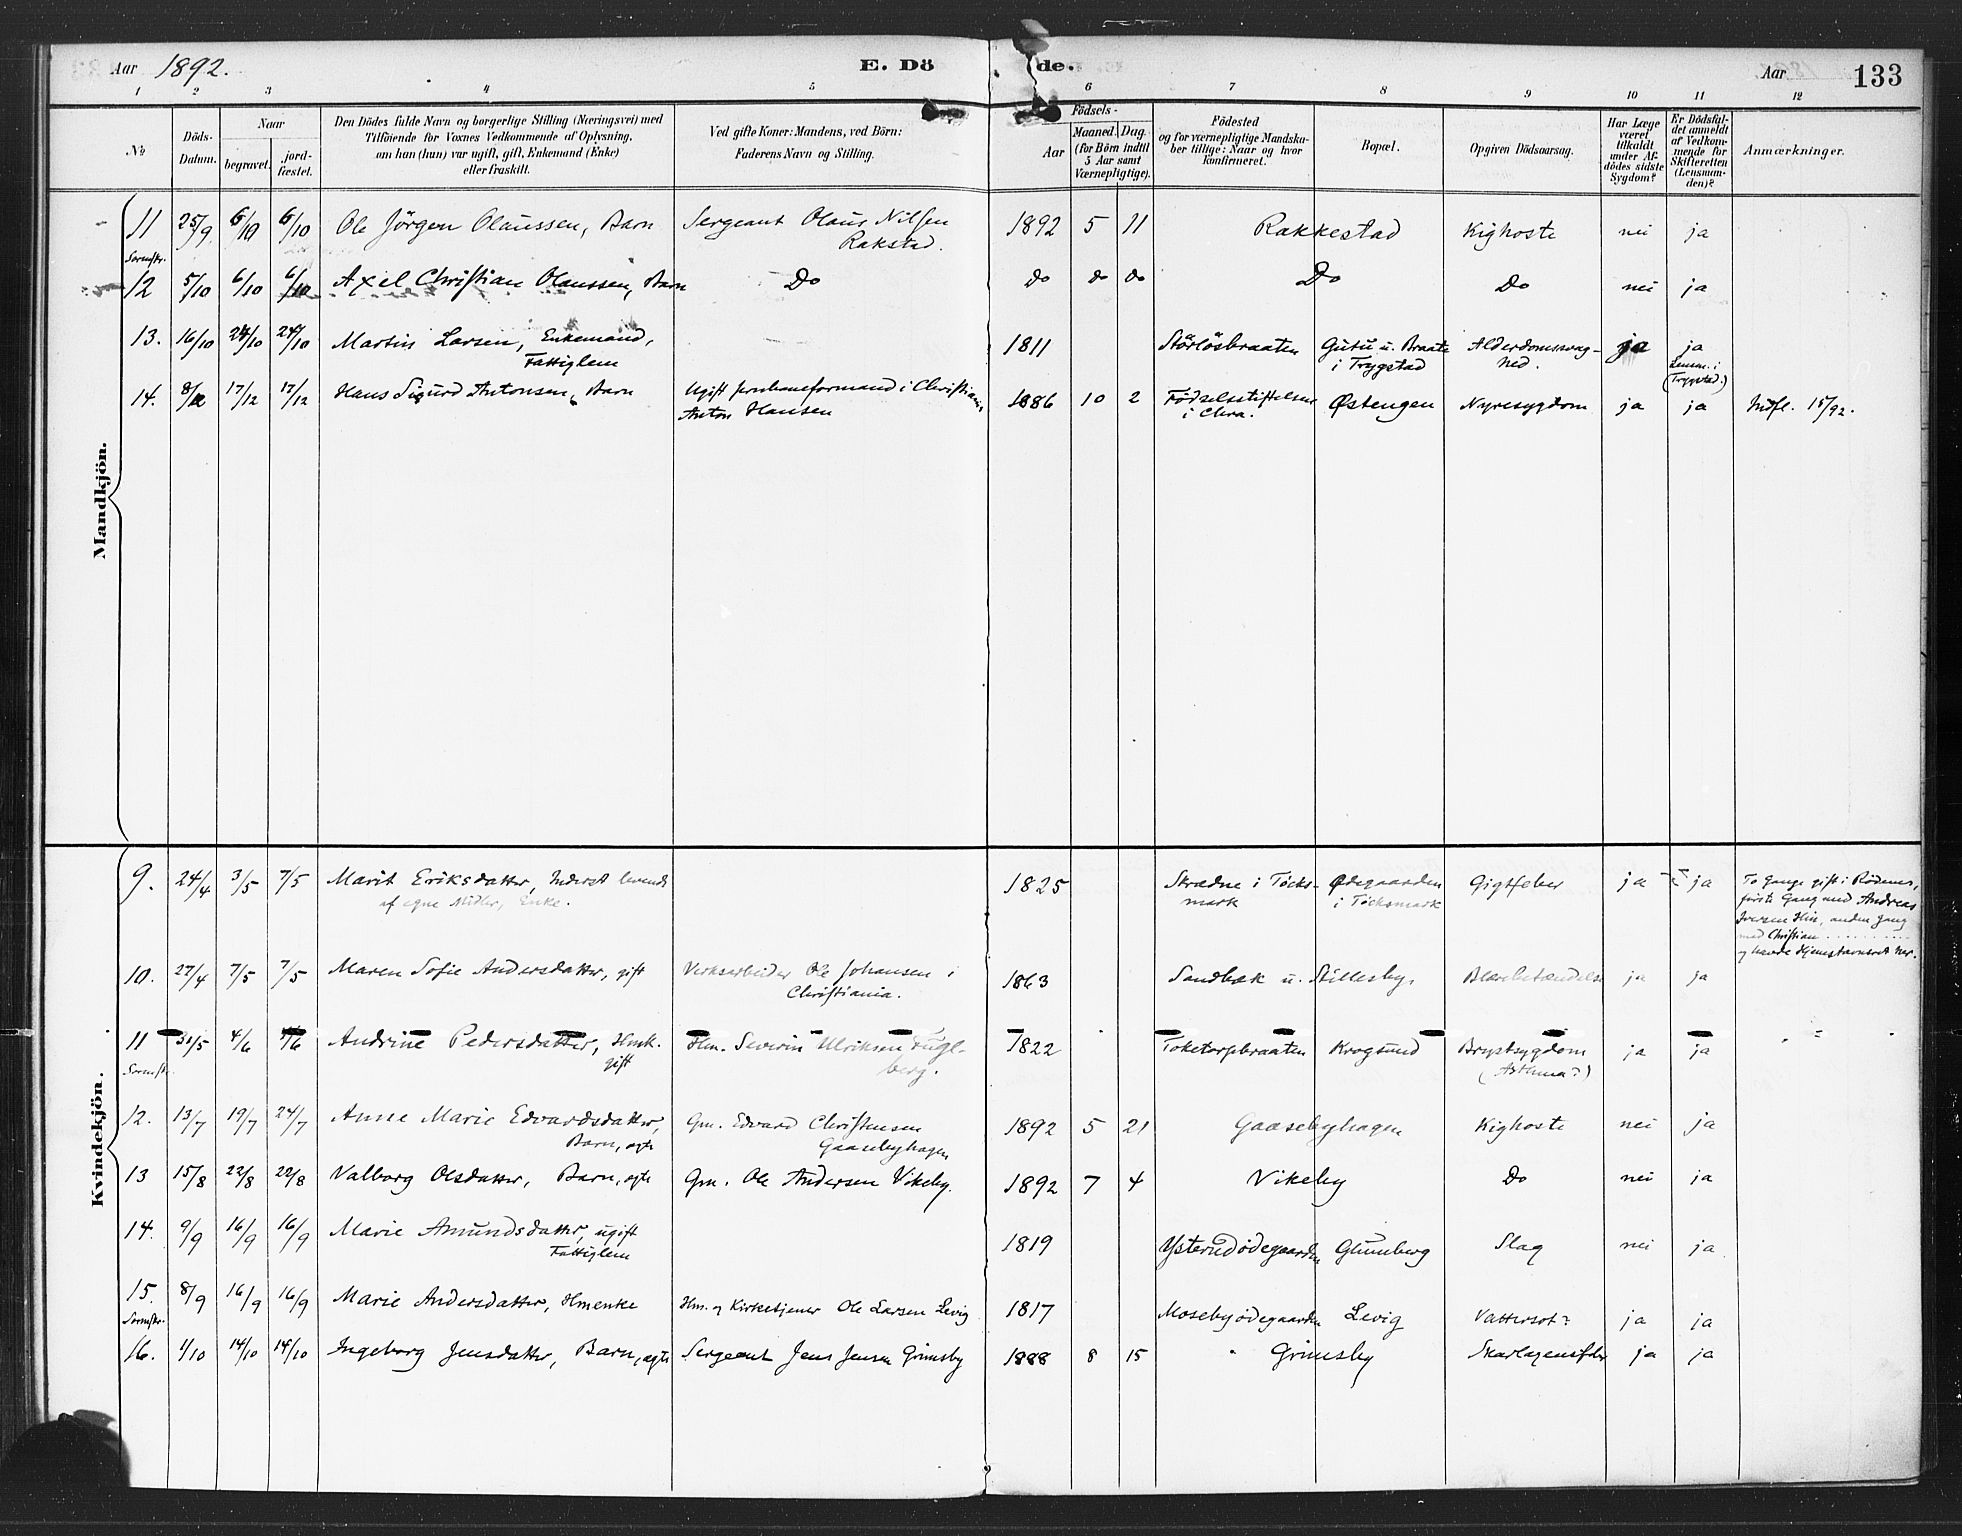 Aar 1892. E. Dö de. Aar 133
1 2 3 4 5 6 7 8 9 10 11 12
№
Döds-Datum.
Naar
begravet. jord-fæstet.
Den Dödes fulde Navn og borgerlige Stilling (Næringsvei) med
Tilföiende for Voxnes Vedkommende af Oplysning,
om han (hun) var ugift, gift, Enkemand (Enke)
eller fraskilt.
Ved gifte Koner: Mandens, ved Börn:
Faderens Navn og Stilling.
Födsels-
Aar
Maaned. Dag.
(for Börn indtil
5 Aar samt
Værnepligtige).
Födested
og for værnepligtige Mandska-
ber tillige: Naar og hvor
konfirmeret.
Bopæl.
Opgiven Dödsaarsag.
Har Læge
været
tilkaldt
under Af-
dödes sidste
Sygdom?
Er Dödsfal-
det anmeldt
af Vedkom-
mende for
Skifteretten
(Lensman-
den)?
Anmærkninger.
Mandkjön.
11 25/9 6/10 6/10 Ole Jörgen Olaussen, Barn Sergeant Olaus Nilsen 1892 5 11 Rakkestad Kighoste nei ja
Rakstad.
Sormstr.
12 5/10 6/10 6/10 Axel Christian Olaussen, Barn Do Do do do Do Do nei ja
13. 16/10 24/10 24/10 Martin Larsen, Enkemand, 1811 Störlösbraaten Gutu u. Braate Alderdomssvag- ja ja
Fattiglem i Trygstad hed. Lensm. i
(Trygstad.)
14. 8/12 17/12 17/12 Hans Sigurd Antonsen, Barn Ugift Jernbaneformand i Christiania 1886 10 2 Fødselsstiftelsen Østengen Nyresygdom ja ja Indfl. 15/92.
Anton Hansen i Chra.
Kvindekjön.
9. 24/4 3/5 7/5 Marit Eriksdatter, Inderst levende 1825 Skrædne i Töcks- Ødegaarden Gigtfeber ja ja To Gange gift i Rödenes,
af egne Midler, Enke. mark i Töcksmark første Gang med Andreas
Iversen Hin, anden gang
med Christian ..........
og havde Hjemstavnsret her.
10. 27/4 7/5 7/5 Maren Sofie Andersdatter, gift Verksarbeider Ole Johansen i 1863 Sandbæk u. Stillesby, Blærebetændelse ja ja
Christiania.
11 31/5 4/6 4/6 Andrine Pedersdatter, Hmk. Hm. Severin Ulriksen Fugl- 1822 Toketorpbraaten Krogsund Brystsygdom ja ja
gift berg. (Asthma?)
Sormstr.
12. 13/7 19/7 24/7 Anne Marie Edvardsdatter, Gm. Edvard Christensen 1892 5 21 Gaasebyhagen Kighoste nei ja
Barn, ægte Gaasebyhagen
13 15/8 22/8 22/8 Valborg Olsdatter, Barn, ægte Gm. Ole Andersen Vikeby. 1892 7 4 Vikeby Do nei ja
14. 9/9 16/9 16/9 Marie Amundsdatter, ugift 1819 Ysterudødegaarden Glumberg Slag nei ja
Fattiglem
15. 8/9 16/9 16/9 Marie Andersdatter, Hmenke Hm. og Kirketjener Ole Larsen Levig 1817 Mosebyødegaarden Levig Vattersot? ja ja
Sormstr.
16. 1/10 14/10 14/10 Ingeborg Jensdatter, Barn, ægte Sergeant Jens Jensen Grimsby 1888 8 15 Grimsby Skarlagensfeber ja ja